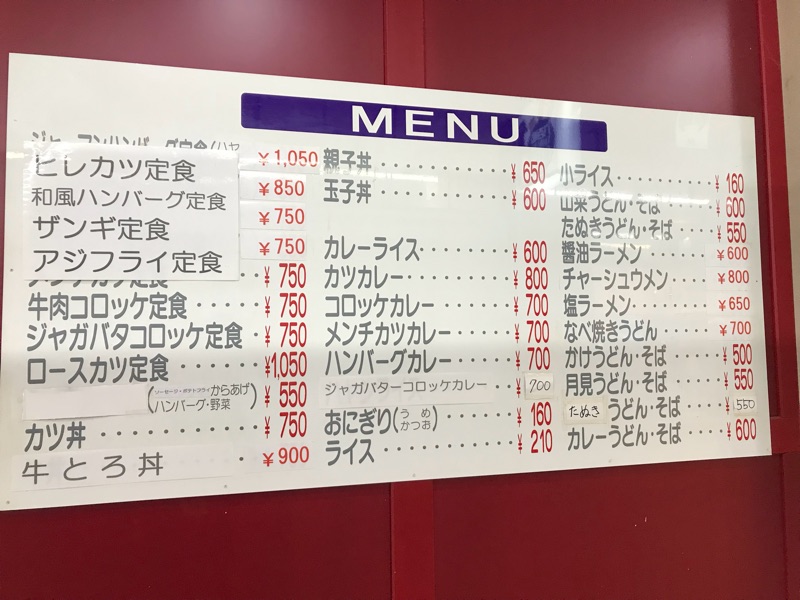 MENU
ヒレカツ定食 ¥1,050
和風ハンバーグ定食 ¥850
ザンギ定食 ¥750
アジフライ定食 ¥750
¥750
牛肉コロッケ定食 ¥750
ジャガバタコロッケ定食 ¥750
ロースカツ定食 ¥1,050
(ソーセージ・ポテトフライ からあげ ¥550
ハンバーグ・野菜)
カツ丼 ¥750
牛とろ丼 ¥900
親子丼 ¥650
玉子丼 ¥600
カレーライス ¥600
カツカレー ¥800
コロッケカレー ¥700
メンチカツカレー ¥700
ハンバーグカレー ¥700
ジャガバターコロッケカレー ¥700
おにぎり(うめ かつお) ¥160
ライス ¥210
小ライス ¥160
山菜うどん・そば ¥600
たぬきうどん・そば ¥550
醬油ラーメン ¥600
チャーシュウメン ¥800
塩ラーメン ¥650
なべ焼きうどん ¥700
かけうどん・そば ¥500
月見うどん・そば ¥550
たぬきうどん・そば ¥550
カレーうどん・そば ¥600